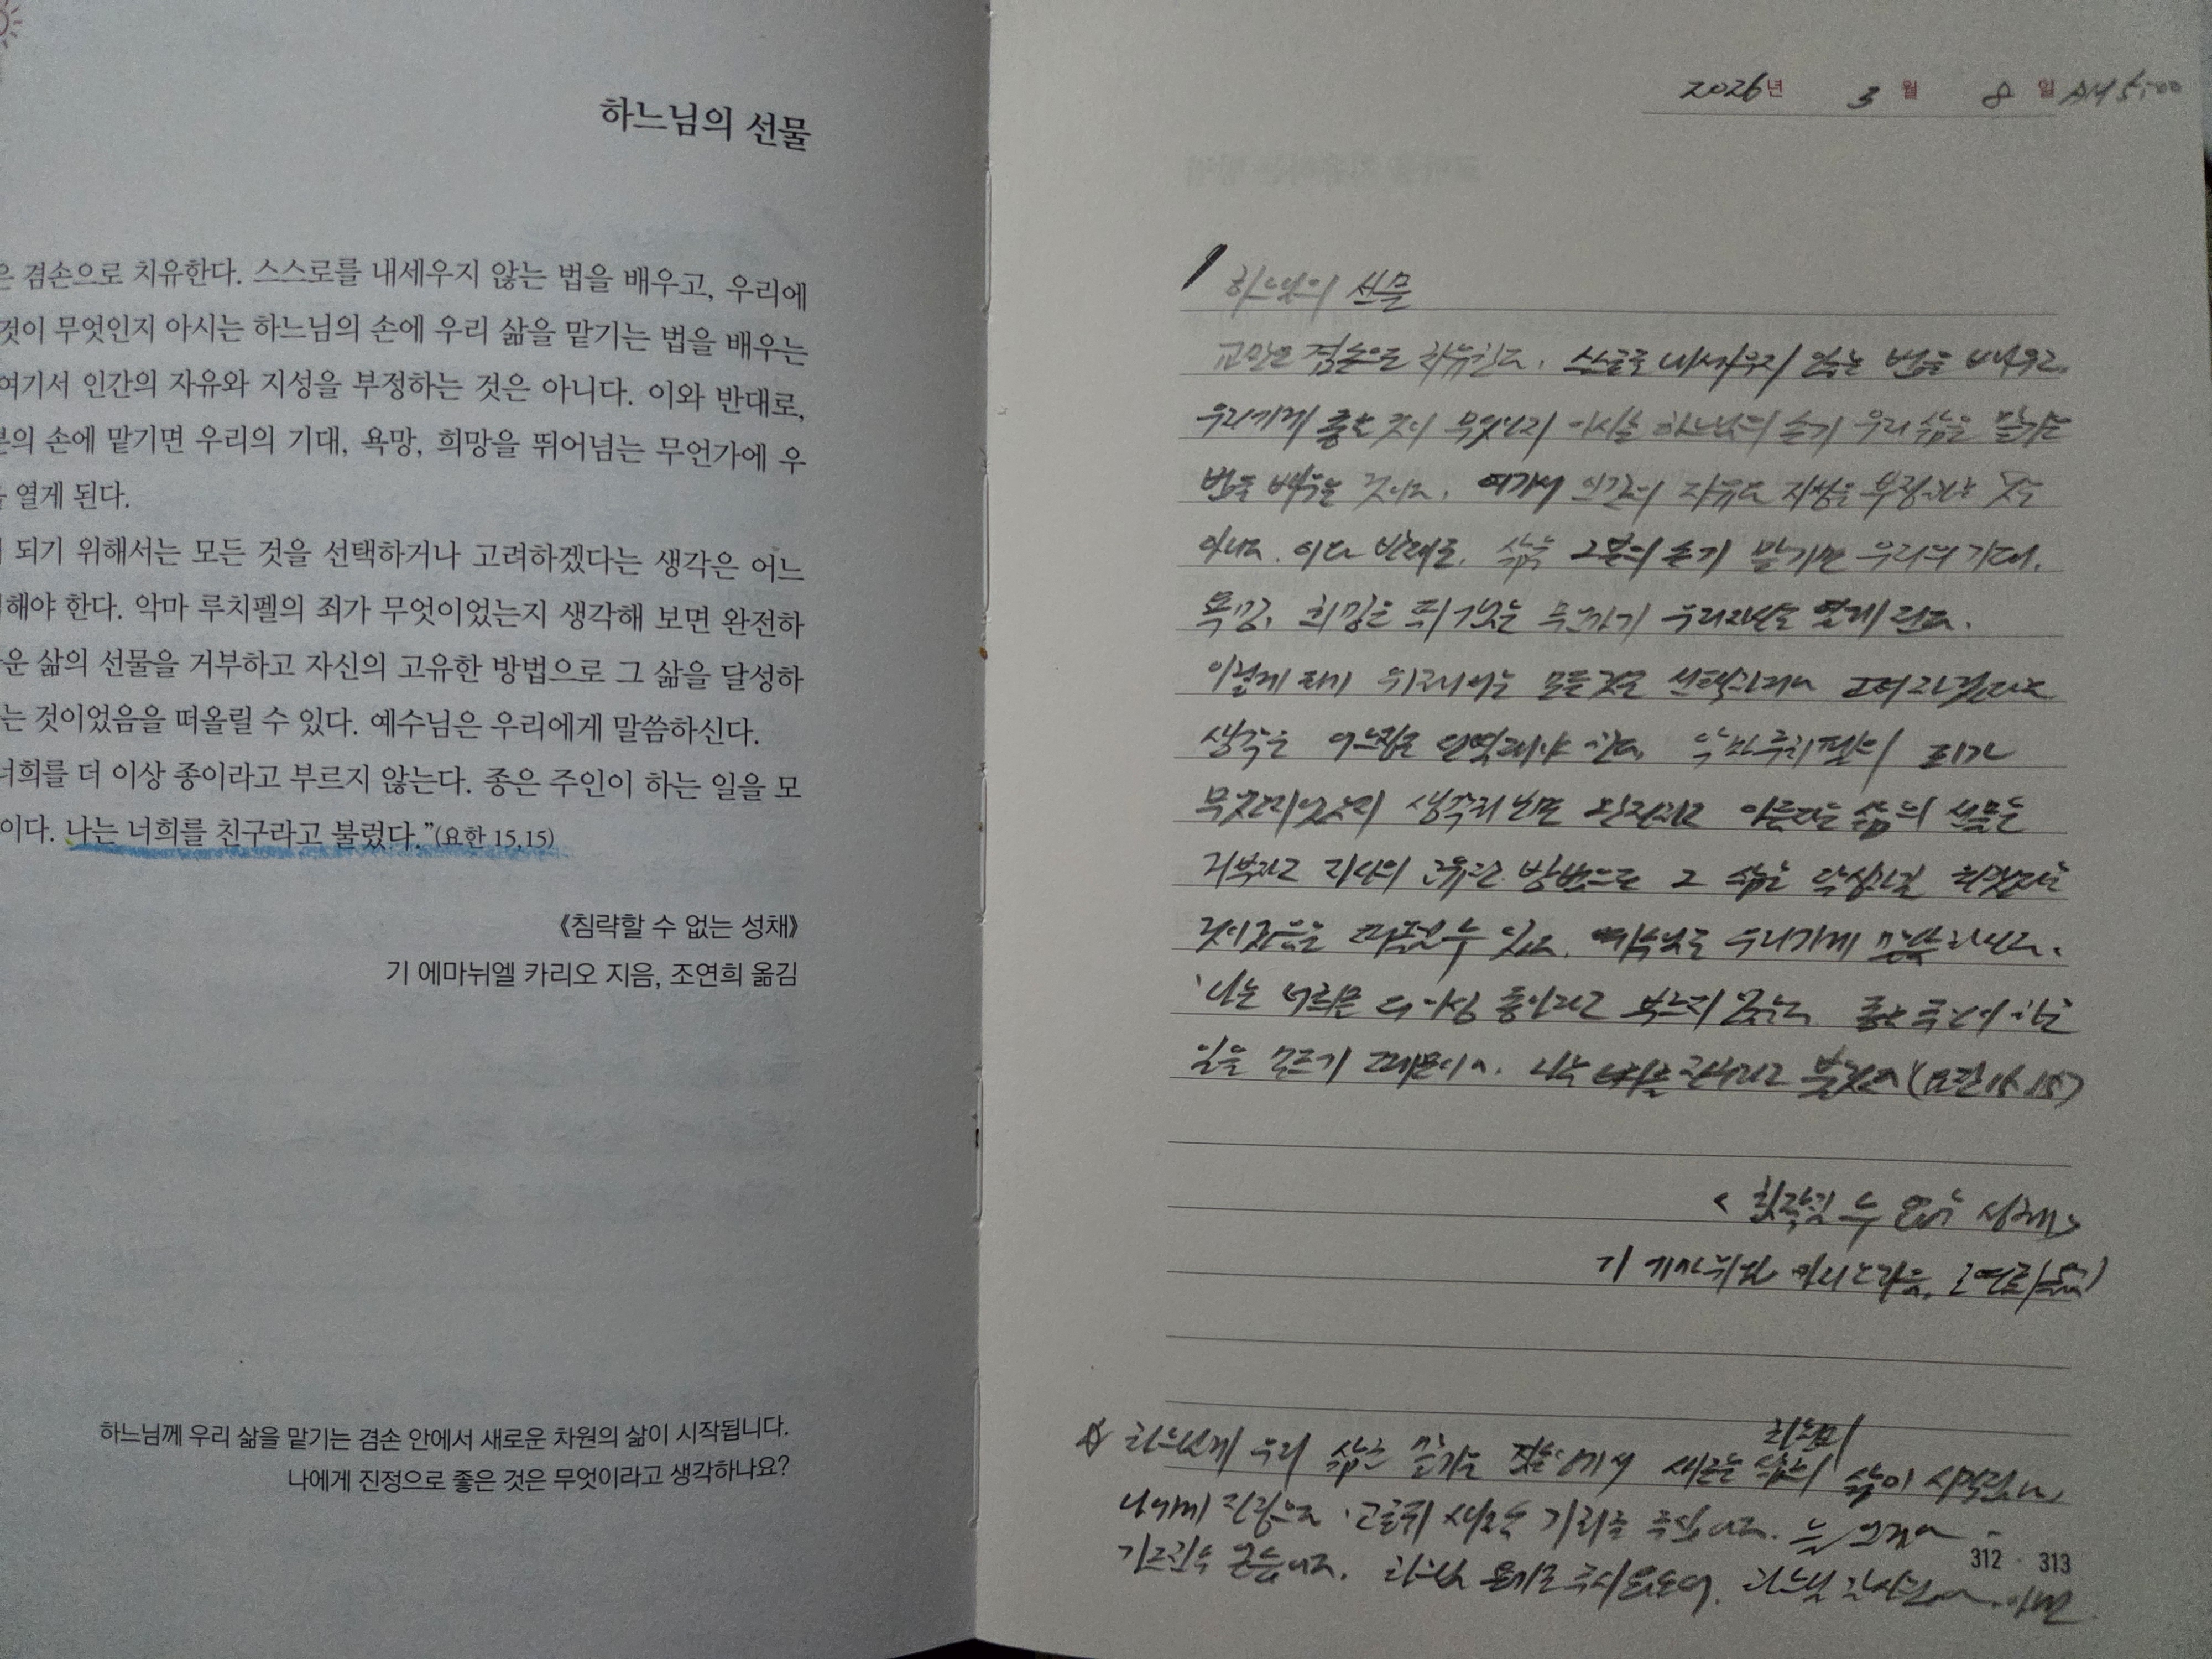 하느님의 선물
은 겸손으로 치유한다. 스스로를 내세우지 않는 법을 배우고, 우리에
것이 무엇인지 아시는 하느님의 손에 우리 삶을 맡기는 법을 배우는
여기서 인간의 자유와 지성을 부정하는 것은 아니다. 이와 반대로,
분의 손에 맡기면 우리의 기대, 욕망, 희망을 뛰어넘는 무언가에 우
열게 된다.
되기 위해서는 모든 것을 선택하거나 고려하겠다는 생각은 어느
해야 한다. 악마 루치펠의 죄가 무엇이었는지 생각해 보면 완전하
운 삶의 선물을 거부하고 자신의 고유한 방법으로 그 삶을 달성하
는 것이었음을 떠올릴 수 있다. 예수님은 우리에게 말씀하신다.
너희를 더 이상 종이라고 부르지 않는다. 종은 주인이 하는 일을 모
이다. 나는 너희를 친구라고 불렀다.”(요한 15,15)
《침략할 수 없는 성채》
기 에마뉘엘 카리오 지음, 조연희 옮김
하느님께 우리 삶을 맡기는 겸손 안에서 새로운 차원의 삶이 시작됩니다.
나에게 진정으로 좋은 것은 무엇이라고 생각하나요?
2026년 3월 8일 AM 5:00
하느님의 선물
교만은 겸손으로 치유한다. 스스로를 내세우지 않는 법을 배우고,
우리에게 좋은 것이 무엇인지 아시는 하느님의 손에 우리 삶을 맡기는
법을 배우는 것이다. 여기서 인간의 자유와 지성을 부정하는 것은
아니다. 이와 반대로, 삶을 그분의 손에 맡기면 우리의 기대,
욕망, 희망을 뛰어넘는 무언가에 우리 자신을 열게 된다.
이렇게 되기 위해서는 모든 것을 선택하거나 고려하겠다는
생각은 어느 정도 단념해야 한다. 악마 루치펠의 죄가
무엇이었는지 생각해 보면 완전하고 아름다운 삶의 선물을
거부하고 자신의 고유한 방법으로 그 삶을 달성하길 희망했다는
것이었음을 떠올릴 수 있다. 예수님은 우리에게 말씀하신다.
'나는 너희를 더 이상 종이라고 부르지 않는다. 종은 주인이 하는
일을 모르기 때문이다. 나는 너희를 친구라고 불렀다 (요한 15.15)
<침략할 수 없는 성채>
기 에마뉘엘 카리오 지음, 조연희 옮김
☆ 하느님께 우리 삶을 맡기는 겸손 안에서 새로운 차원의 삶이 시작됩니다
나에게 진정으로 새로운 기회를 주십니다.
하느님 용기를 주시옵소서. 하느님 감사합니다. 아멘
312 · 313